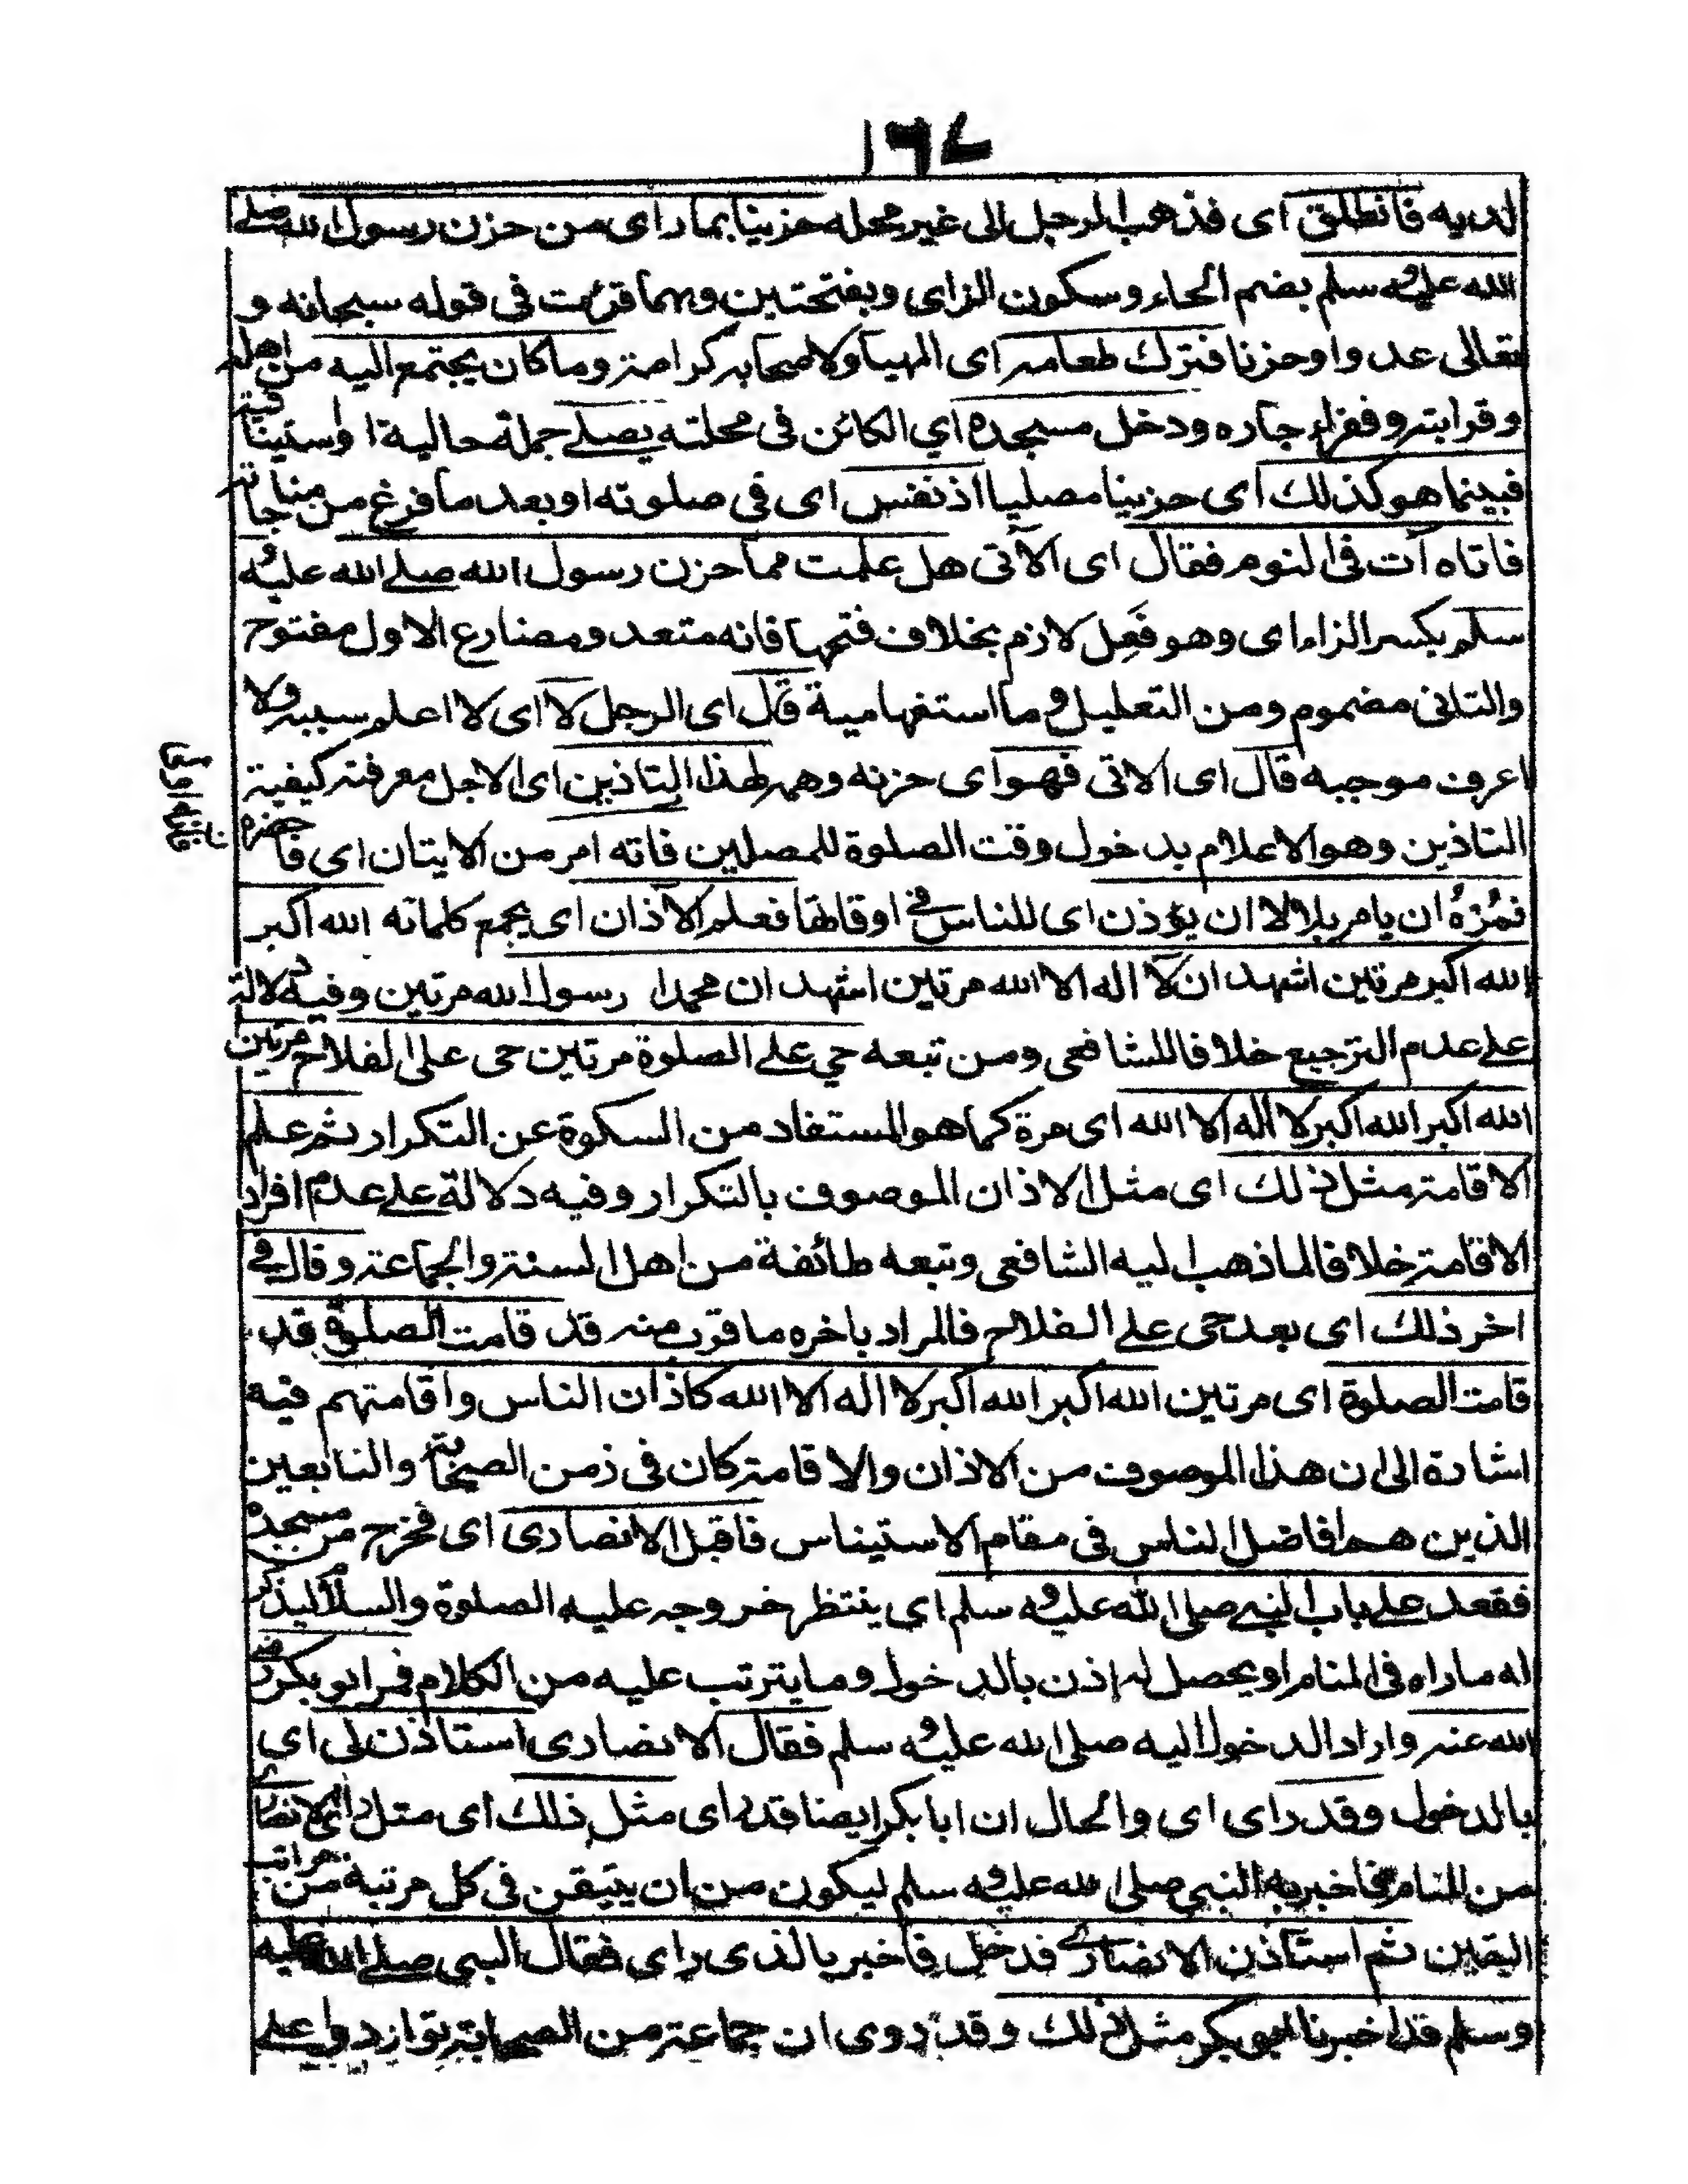 ١٦٧
لديه فانطلق اى فذهب الرجل الى غير محله حزينا بما راى من حزن رسول الله صلے
الله عليه وسلم بضم الحاء وسكون الزاى وبفتحتين وبهما قرئت فى قوله سبحانه و
تعالى عدوا وحزنا فترك طعامه اى المهيا ولاصحابه كرامته وما كان يجتمع اليه من اهله
وقرابته وفقراء جاره ودخل مسجده اي الكائن فى محلته يصلے جملة حالية او استينافية
فبينما هو كذلك اى حزينا مصليا اذ نفس اى فى صلوته او بعد ما فرغ من مناجاته
فاتاه آت فى النوم فقال اى الآتى هل علمت مما حزن رسول الله صلے الله عليه و
سلم بكسر الزاء اى وهو فَعِل لازم بخلاف فتحها فانه متعد ومضارع الاول مفتوح
والثانى مضموم ومن التعليل وما استفهامية قال اى الرجل لا اى لا اعلم سببه ولا
اعرف موجبه قال اى الاتى فهو اى حزنه وهمه لهذا التاذين اى لاجل معرفته كيفية
التاذين وهو الاعلام بدخول وقت الصلوة للمصلين فاته امر من الايتان اى فاحضره
فمُرْهُ ان يامر بلالا ان يؤذن اى للناس فے اوقاتها فعلم الآذان اى بجمع كلماته الله اكبر
الله اكبر مرتين اشهد ان لا اله الا الله مرتين اشهد ان محمدا رسول الله مرتين وفيه دلالة
علے عدم الترجيع خلافا للشافعى ومن تبعه حي علے الصلوة مرتين حى على الفلاح مرتين
الله اكبر الله اكبر لا اله الا الله اى مرة كما هو المستفاد من السكوة عن التكرار ثم علم
الاقامة مثل ذلك اى مثل الاذان الموصوف بالتكرار وفيه دلالة علے عدم افراد
الاقامة خلافا لما ذهب اليه الشافعى وتبعه طائفة من اهل السنة والجماعة وقال فے
اخر ذلك اى بعد حى علے الفلاح فالمراد باخره ما قرب منه قد قامت الصلوة قد
قامت الصلوة اى مرتين الله اكبر الله اكبر لا اله الا الله كاذان الناس واقامتهم فيه
اشارة الى ان هذا الموصوف من الاذان والاقامة كان فى زمن الصحابة والتابعين
الذين هم افاضل الناس فى مقام الاستيناس فاقبل الانصارى اى فخرج من مسجده
فقعد علے باب النبے صلى الله عليه وسلم اى ينتظر خروجه عليه الصلوة والسلام ليذكر
له ما راه فى المنام او يحصل له اذن بالدخول وما يترتب عليه من الكلام فمر ابو بكر رضى
الله عنه واراد الدخول اليه صلى الله عليه وسلم فقال الانصارى استاذن لى اى
بالدخول وقد راى اى والحال ان ابا بكر ايضا قد راى مثل ذلك اى مثل راى الانصارى
من المنام فاخبر به النبي صلى الله عليه وسلم ليكون من ان يتيقن فى كل مرتبة من مراتب
اليقين ثم استاذن الانصارے فدخل فاخبر بالذى راى فقال النبى صلے الله عليه
وسلم قد اخبرنا ابو بكر مثل ذلك وقد روى ان جماعة من الصحابة تواردوا علے